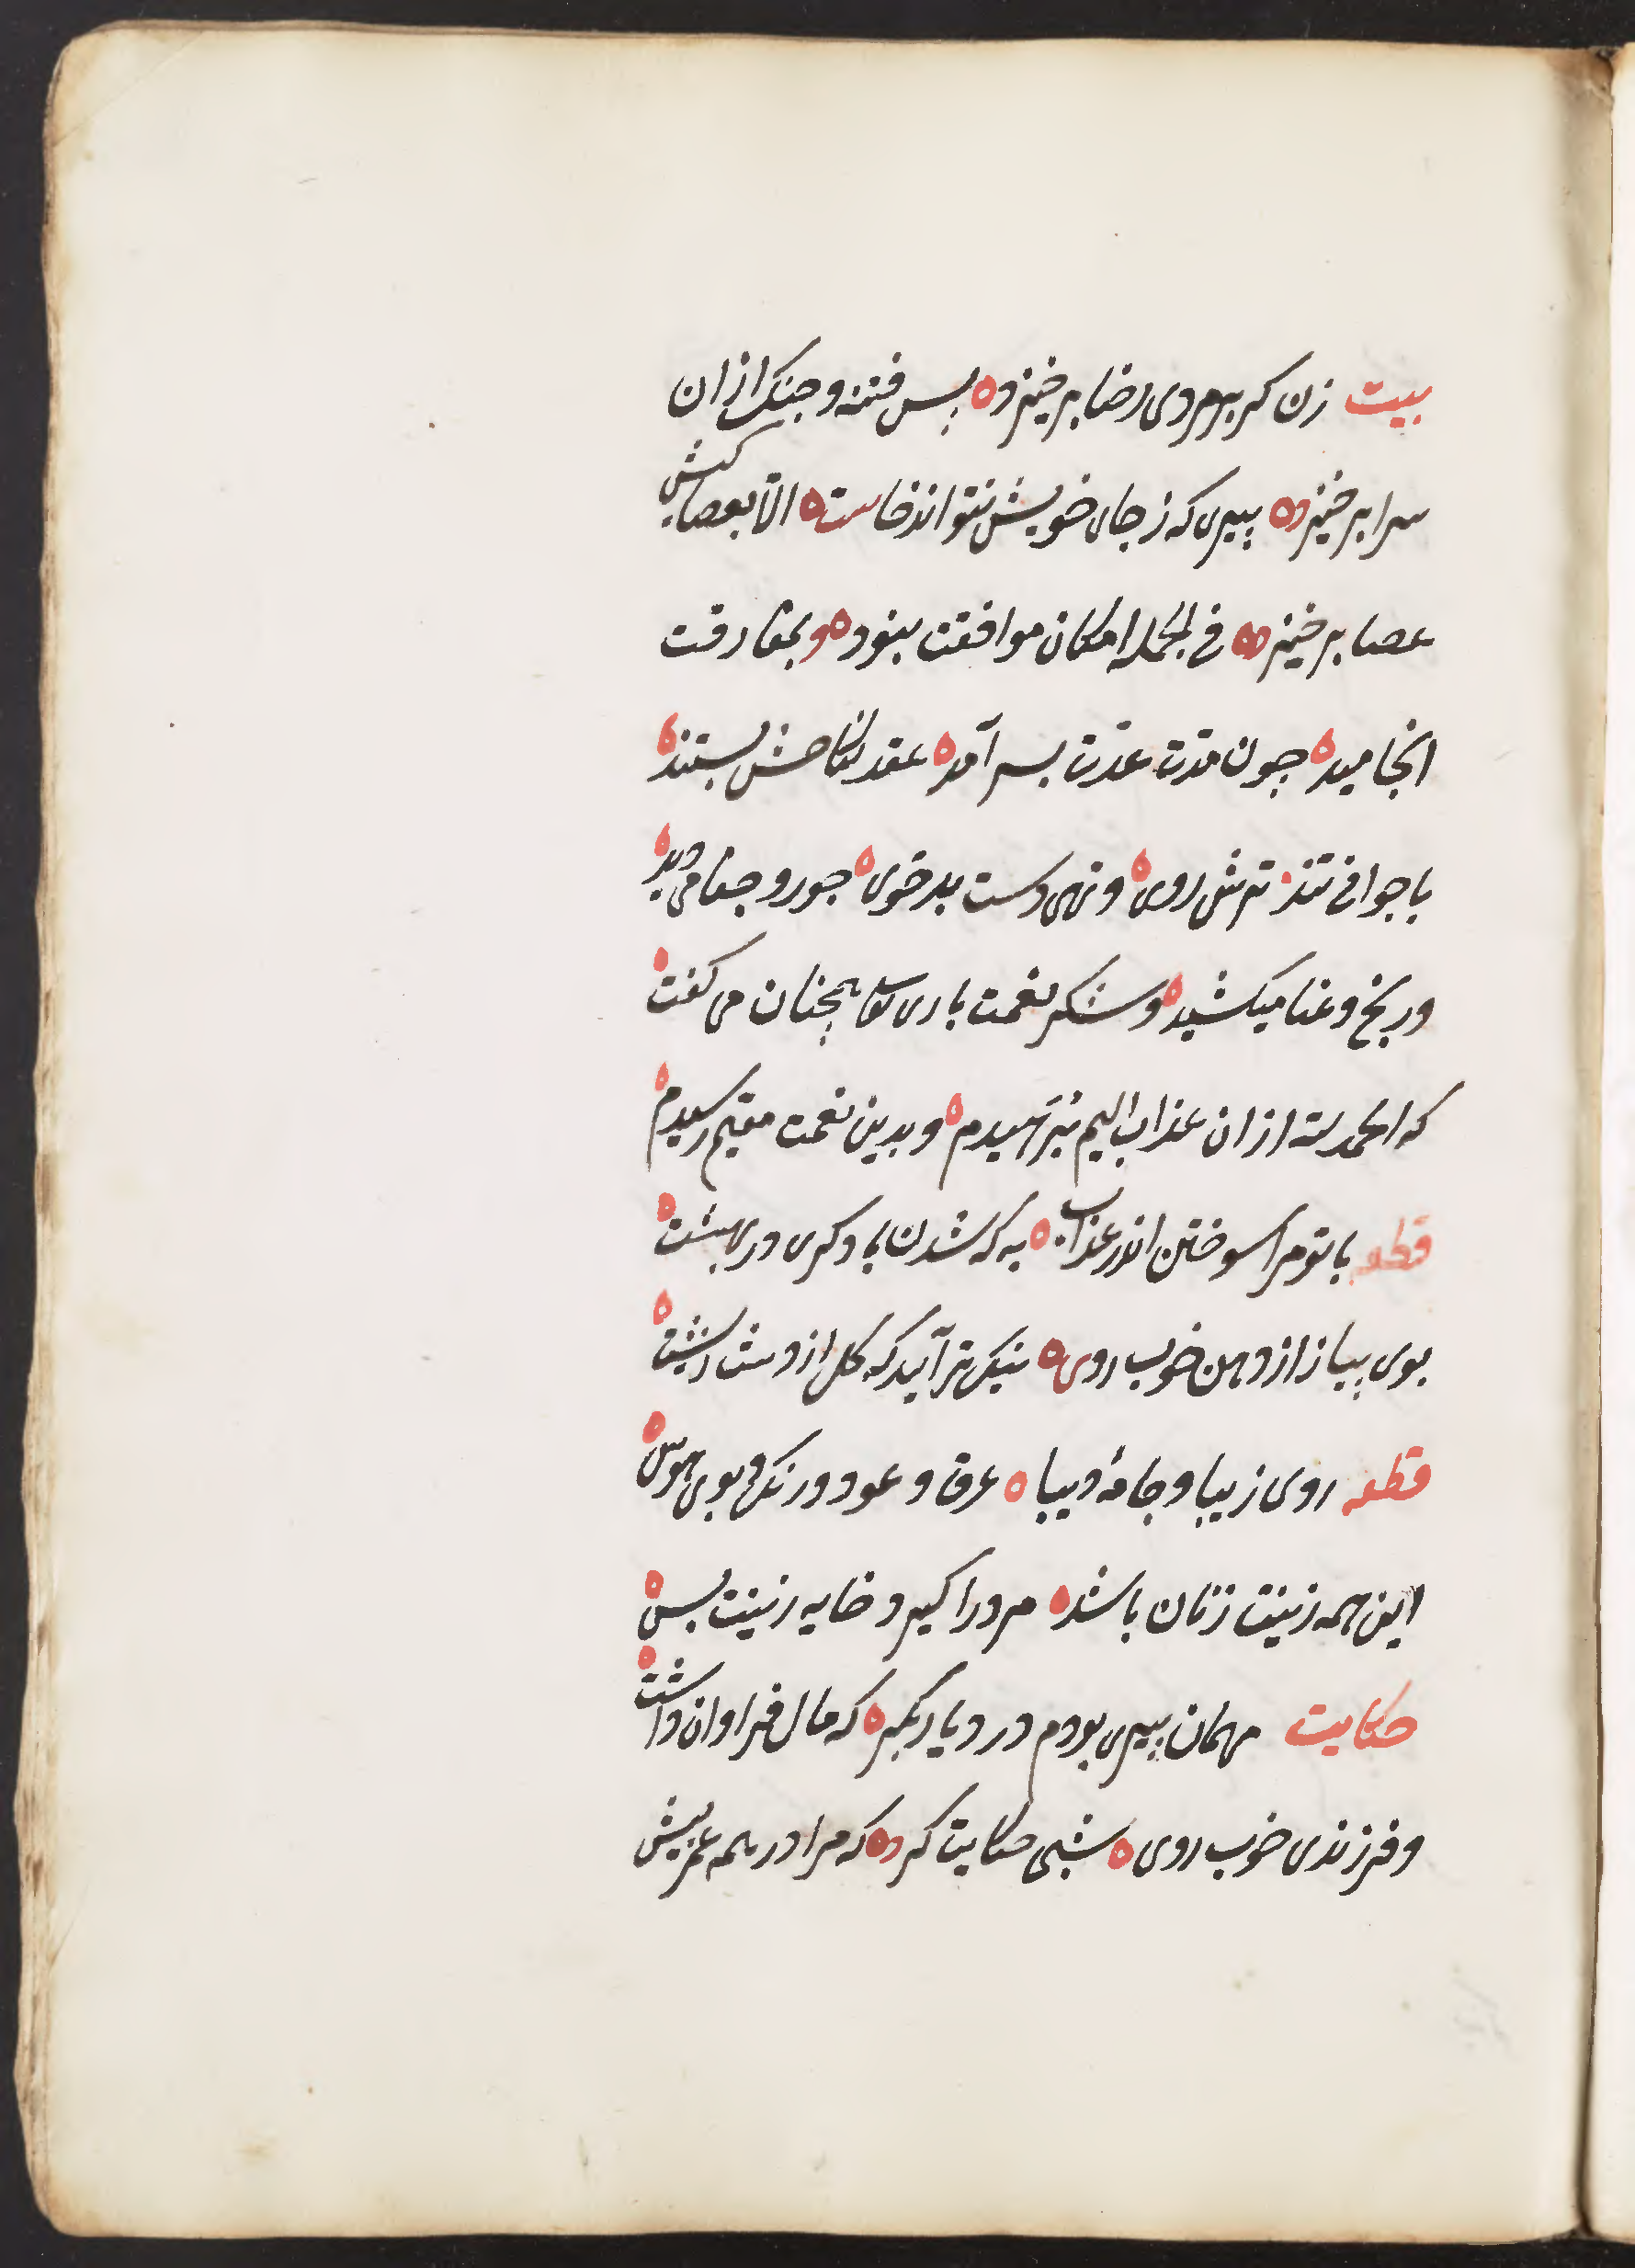 بیت زن کز بر مردی رضا برخیزد ه بس فتنه و جنک ازان
سرا برخیزد ه پیری که ز جای خویش نتواند خاست ه الا بعصا کیش
عصا برخیزد ه فی الجمله امکان موافقت نبود ه و بمفارقت
انجامید ه چون مدت عدت بسر آمد ه عقد نکاحش بستند ه
با جوانی تند ترش روی ه و تهی دست بدخوی ه جور و جفا می دید ه
و رنج و عنا میکشید ه و شکر نعمت باری تعالی همچنان می کفت ه
که الحمد لله ازان عذاب الیم برهیدم ه و بدین نعمت مقیم رسیدم ه
قطعه با تو مرا سوختن اندر عذاب ه به که شدن با دکری در بهشت ه
بوی پیاز از دهن خوب روی ه نیک تر آید که کل از دست زشت ه
قطعه روی زیبا و جامهٔ دیبا ه عرق و عود و رنک و بوی هوس ه
این همه زینت زنان باشد ه مرد را کیر و خایه زینت بس ه
حکایت مهمان پیری بودم در دیار بکر ه که مال فراوان داشت ه
و فرزندی خوب روی ه شبی حکایت کرد ه که مرا در همه عمر بیش